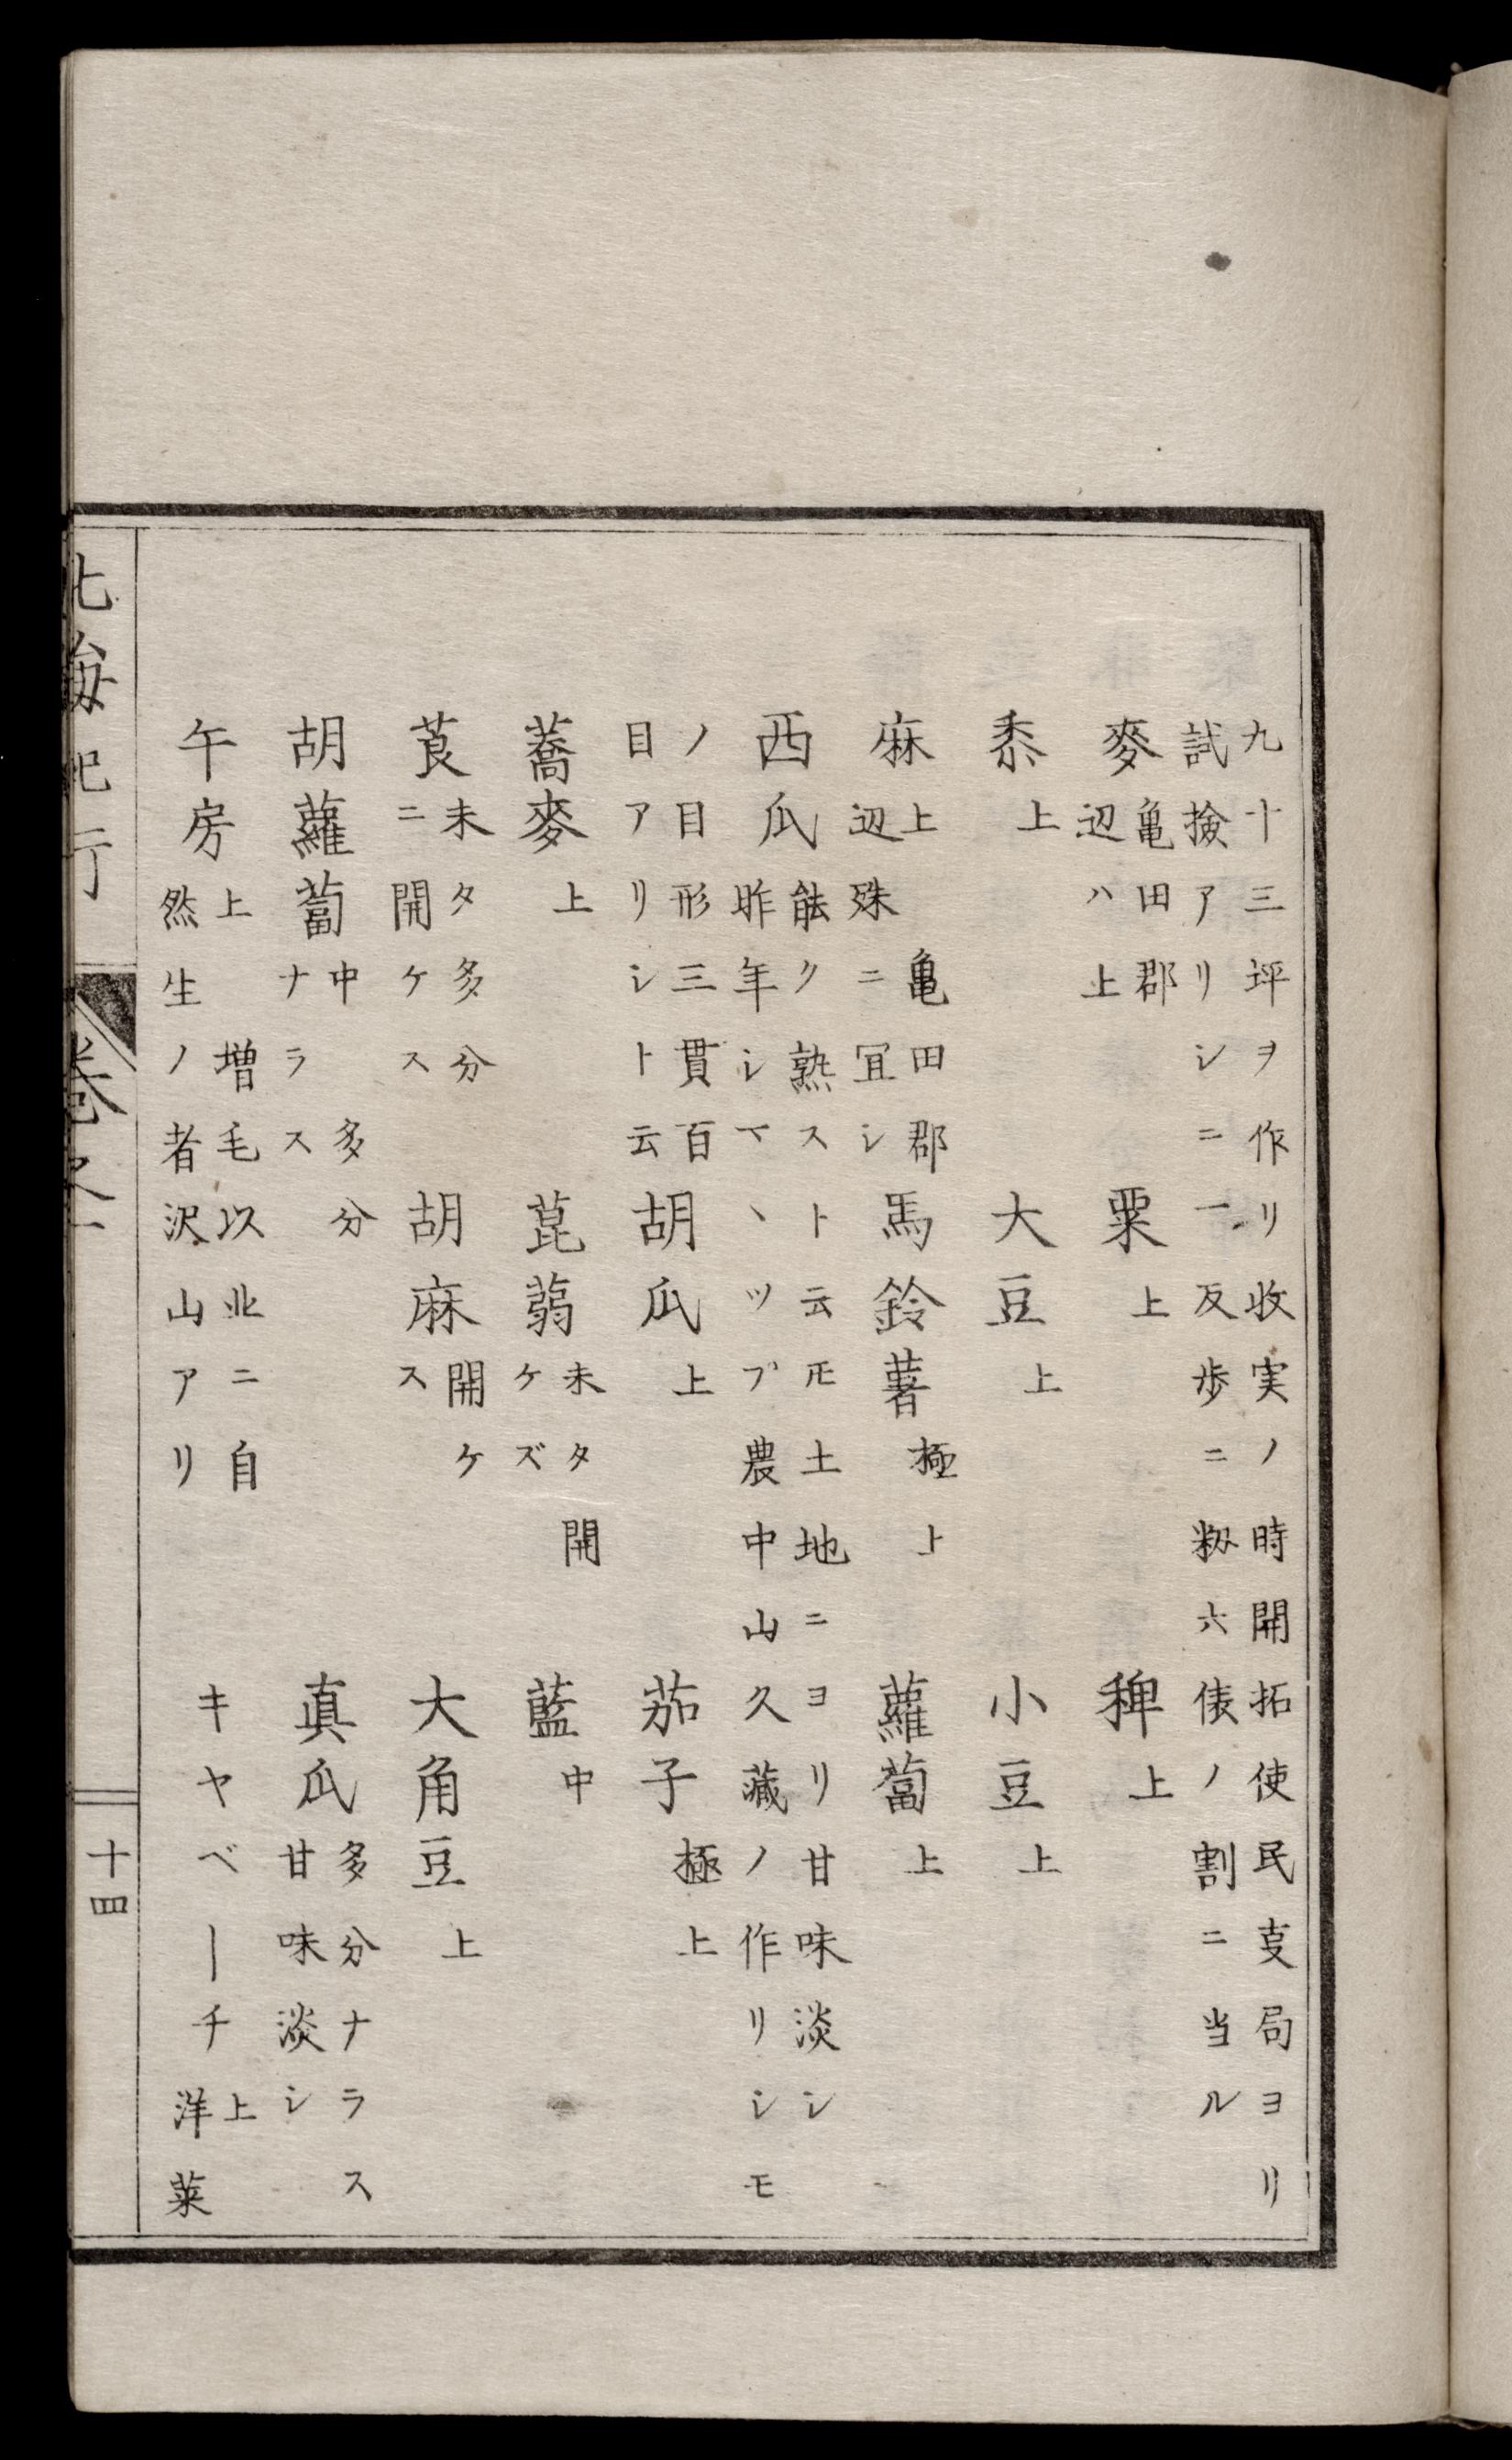 九十三坪ヲ作リ收実ノ時開拓使民支局ヨリ
試撿アリシニ一反歩ニ籾六俵ノ割ニ当ル
麥 亀田郡辺ハ上 粟 上 稗 上
黍 上 大豆 上 小豆 上
麻 上 亀田郡辺殊ニ冝シ 馬鈴薯 極上 蘿蔔 上
西瓜 能ク熟ストモ云𪜈土地ニヨリ甘味淡シ
昨年シマヽツプ農中山久藏ノ作リシモ
ノ目形三貫百
目アリシト云 胡瓜 上 茄子 極上
蕎麥 上 菎蒻 未タ開ケズ 藍 中
莨 未タ多分ニ開ケス 胡麻 開ケス 大角豆 上
胡蘿蔔 中 多分ナラス 真瓜 多分ナラス甘味淡シ
午房 上 増毛以北ニ自然生ノ者沢山アリ キヤベーチ 上 洋菜
北海紀行 卷之一 十四